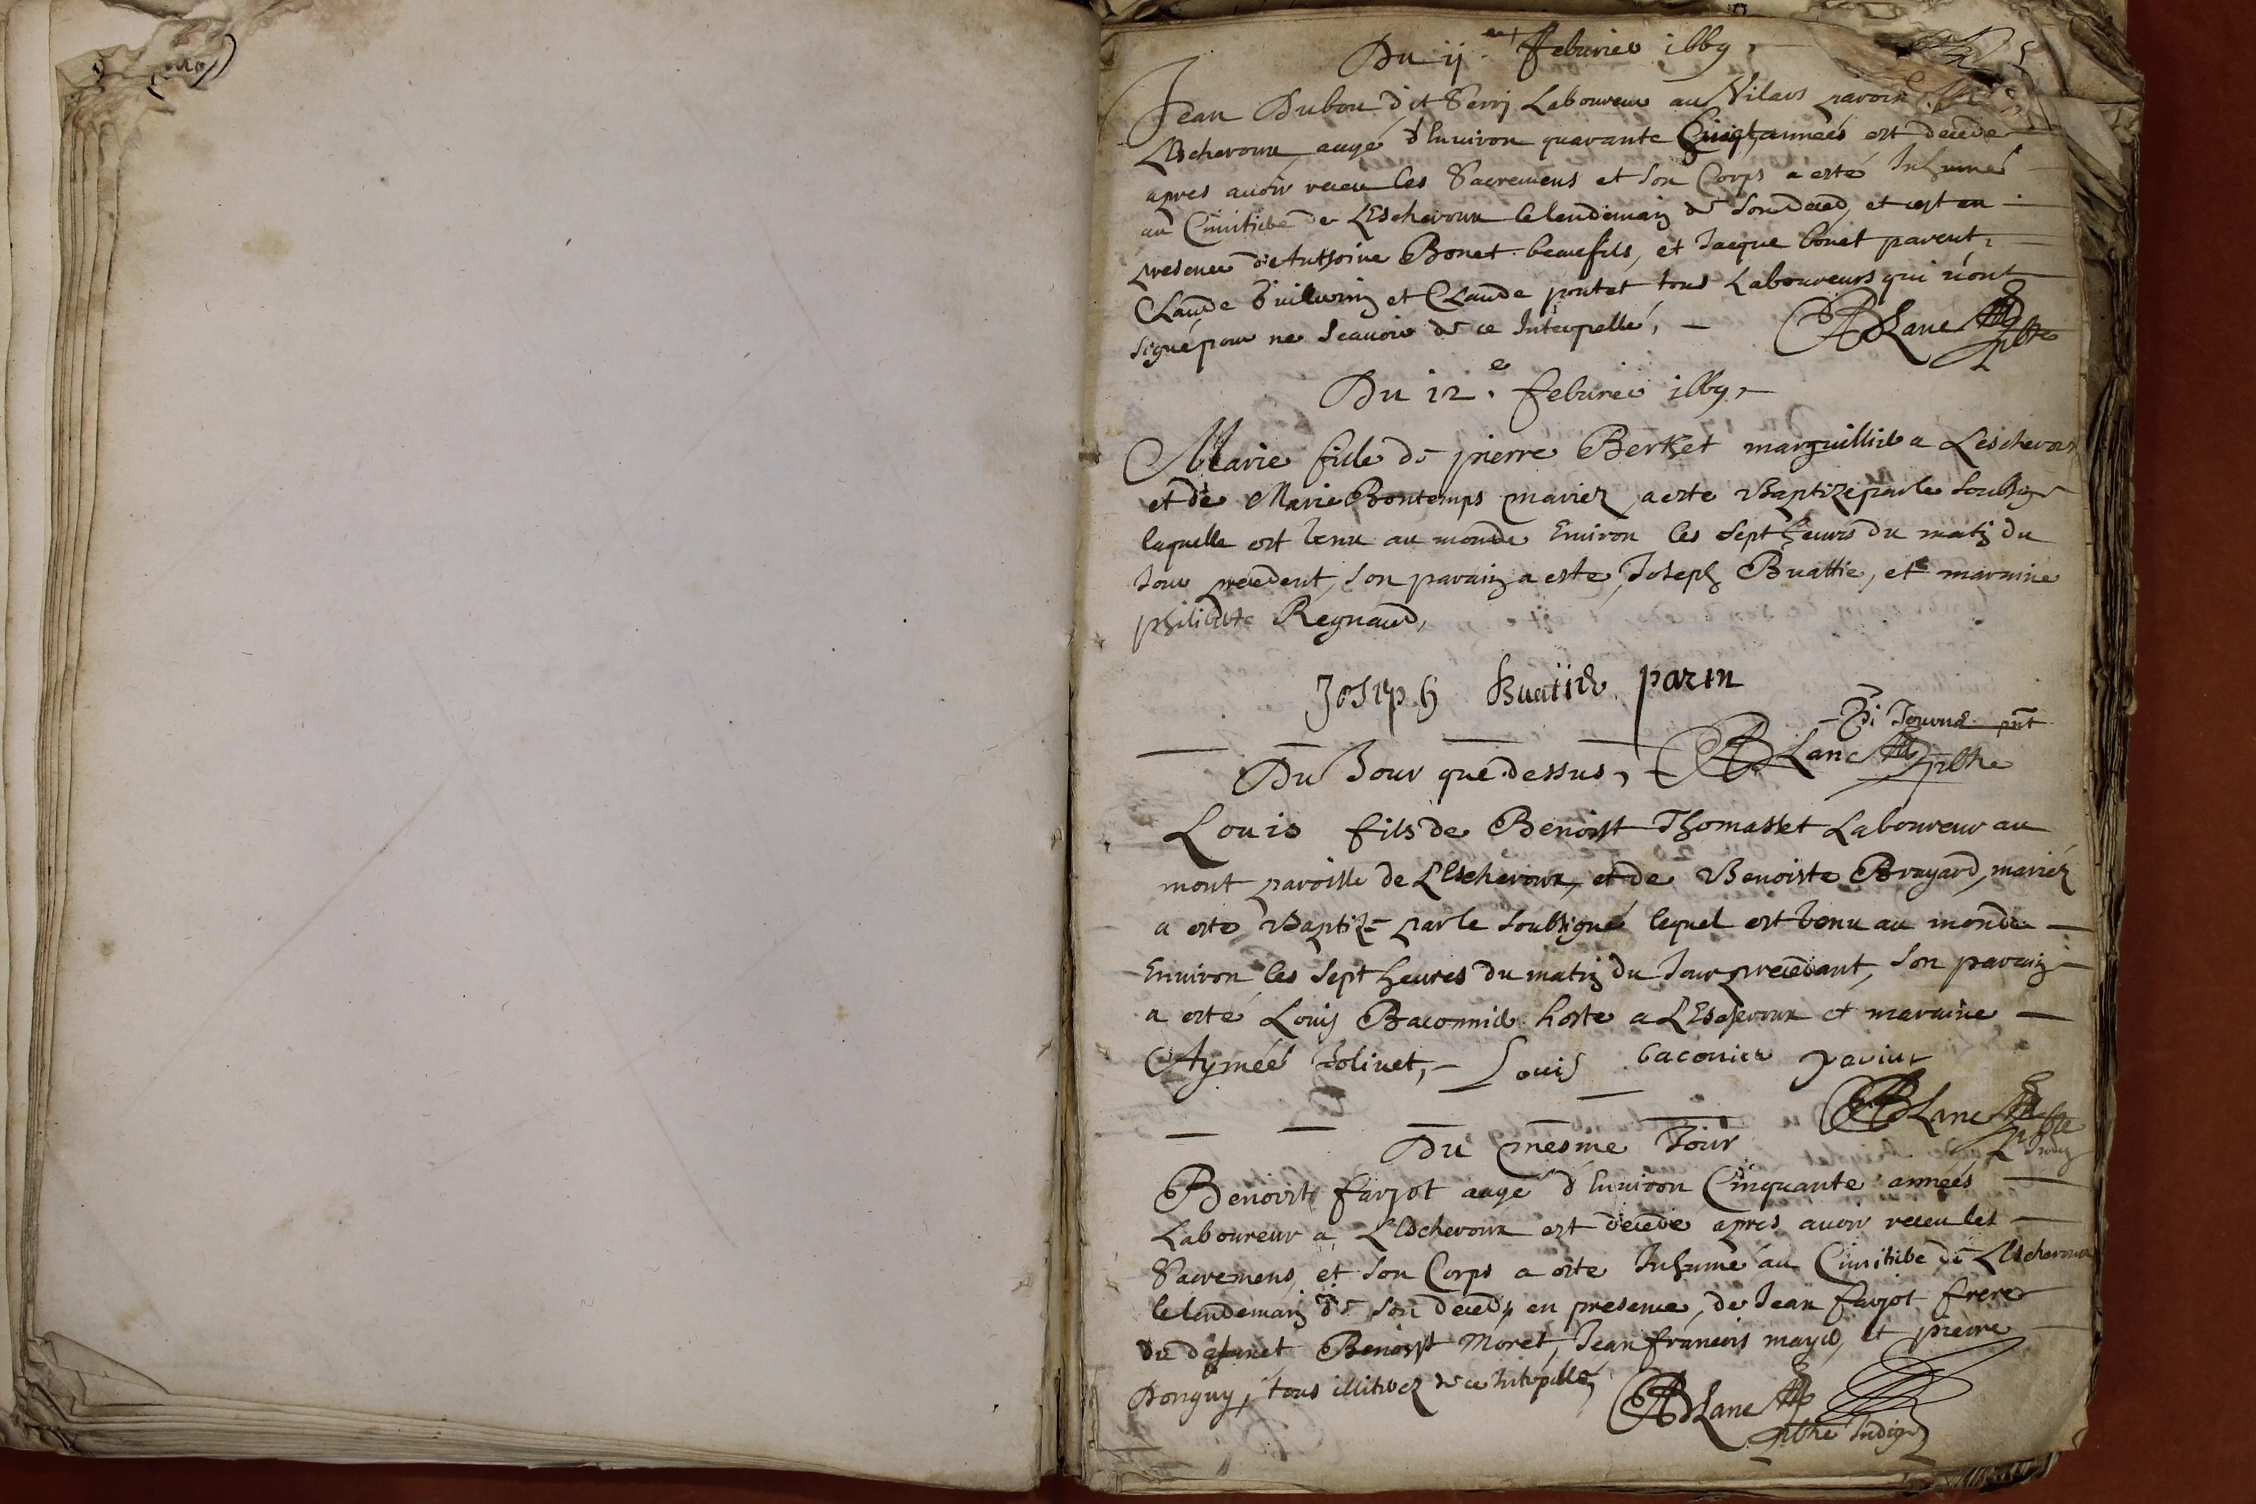 Du ij.me febvrier 1669,
Jean Dubou dit Serrj Laboureur au Vilars paroisse
LEscheroux aagé d'Environ quarante Cinq années est decedé
apres avoir receu les Sacremens et son Corps a esté Inhumé
au Cimitiere de LEscheroux le lendemain de son deced, et cest en
presence d'Anthoine Bonet beaufils, et Jacque bonet parent,
Claude et Claude pontet tous Laboureurs qui n'ont
signé pour ne scavoir de ce Interpellé, ABLanc pbre
Du 12.e febvrier 1669,
Marie fille de pierre Berthet marguillier a Lescheroux
et de Marie Bontemps mariez a este Baptize par le soubsigné
laquelle est venu au monde Environ les sept heures du matin du
Jour precedent, son parain a este Joseph Buattie, et maraine
philiberte Regnaud,
Joseph Buatier parin
pnt
Du Jour que dessus, ABLanc pbre
Louis fils de Benoist Thomasset Laboureur au
mont paroisse de LEscheroux, et de Benoiste Brayard, mariéz
a esté Baptize par le soubsigné lequel est venu au monde
Environ les sept heures du matin du Jour precedant, son parain
a esté Louis Baconnier hoste a LEscheroux et maraine
Aymeé Jolivet, Louis baconier parint
ABLanc pbre
Indig
Du mesme Jour
Benoist farjot aagé d'Environ Cinquante années
Laboureur a LEscheroux est decedé apres avoir receu les
Sacremens, et son Corps a este Inhumé au Cimitiere de LEscheroux
le lendemain de son deceds en presence, de Jean farjot frere
du défunct Benoist Moret, Jean francois mayer, et pierre
Donguy, tous illitirez de ce Interpellé, ABLanc
pbre Indig